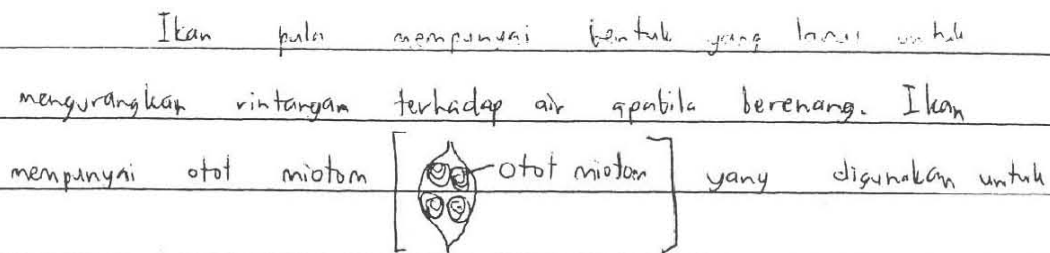 Ikan pula mempunyai bentuk yang larus untuk
mengurangkan rintangan terhadap air apabila berenang. Ikan
mempunyai otot miotom [ otot miotom ] yang digunakan untuk